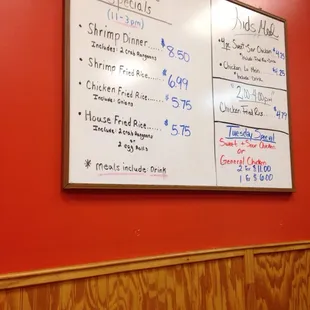 Specials
(11-3pm)
• Shrimp Dinner..... $8.50
Includes: 2 Crab Rangoons
• Shrimp Fried Rice.... $6.99
• Chicken Fried Rice..... $5.75
Include: Onions
• House Fried Rice..... $5.75
Include: 2 Crab Rangoons
or
2 egg Rolls
* meals include: Drink
Kids Meal
Sweet + Sour Chicken $4.75
• Chicken Lo Mein $4.25
Include: Drink
Chicken Fried Rice...
Tuesday Special
Sweet + Sour Chicken
or
General Chicken
2 for $11.00
1 for $6.00